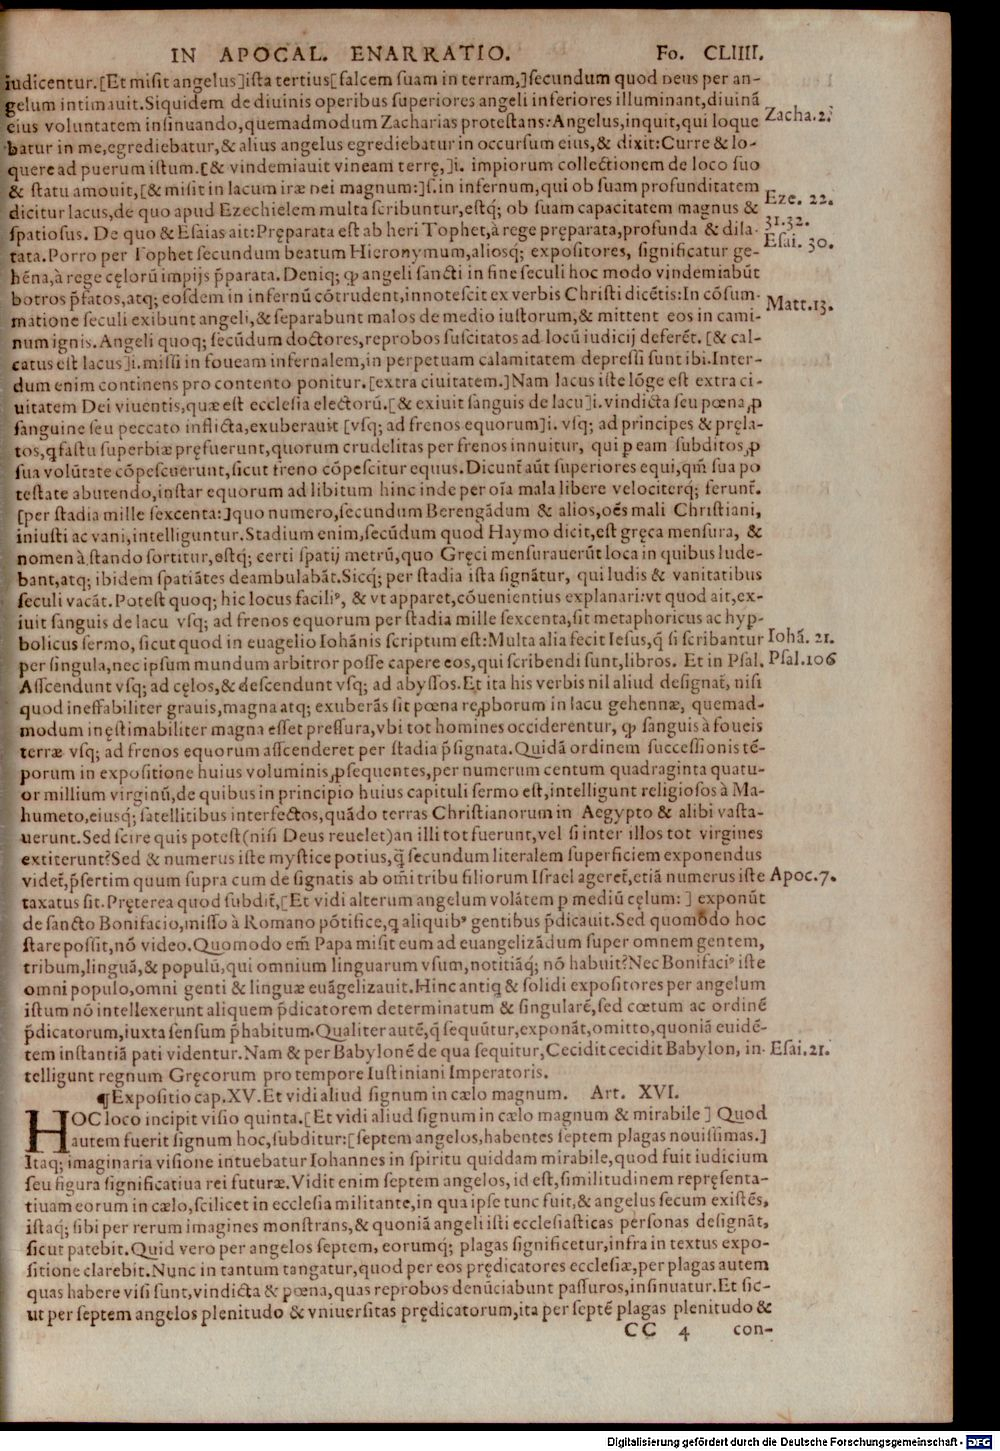 IN APOCAL. ENARRATIO. Fo. CLIIII.
iudicentur.[Et misit angelus]ista tertius[falcem suam in terram,]secundum quod deus per an-
gelum intimauit.Siquidem de diuinis operibus superiores angeli inferiores illuminant,diuinã
eius voluntatem insinuando,quemadmodum Zacharias protestans:Angelus,inquit,qui loque
Zacha.2.
batur in me,egrediebatur,& alius angelus egrediebatur in occursum eius,& dixit:Curre & lo-
quere ad puerum istum.[& vindemiauit vineam terrę,]i. impiorum collectionem de loco suo
& statu amouit,[& misit in lacum iræ dei magnum:]s.in infernum,qui ob suam profunditatem
dicitur lacus,de quo apud Ezechielem multa scribuntur,estq́; ob suam capacitatem magnus &
Eze. 22.
31.32.
spatiosus. De quo & Esaias ait:Pręparata est ab heri Tophet,à rege pręparata,profunda & dila-
Esai. 30.
tata.Porro per Tophet secundum beatum Hieronymum,aliosq́; expositores, significatur ge-
hẽna,à rege cęlorũ impijs p̃parata. Deniq; ꝙ angeli sancti in fine seculi hoc modo vindemiabũt
botros p̃fatos,atq; eosdem in infernũ cõtrudent,innotescit ex verbis Christi dicẽtis:In cõsum-
Matt.13.
matione seculi exibunt angeli,& separabunt malos de medio iustorum,& mittent eos in cami-
num ignis. Angeli quoq; secũdum doctores,reprobos suscitatos ad locũ iudicij deferẽt. [& cal-
catus est lacus]i.missi in foueam infernalem,in perpetuam calamitatem depressi sunt ibi.Inter-
dum enim continens pro contento ponitur.[extra ciuitatem.]Nam lacus iste lõge est extra ci-
uitatem Dei viuentis,quæ est ecclesia electorũ.[& exiuit sanguis de lacu]i.vindicta seu pœna,ꝓ
sanguine seu peccato inflicta,exuberauit [vsq; ad frenos equorum]i. vsq; ad principes & pręla-
tos,q fastu superbiæ pręfuerunt,quorum crudelitas per frenos innuitur, qui ꝑ eam subditos,ꝓ
sua volũtate cõpescuerunt,sicut freno cõpescitur equus.Dicunt̃ aũt superiores equi,qm̃ sua po
testate abutendo,instar equorum ad libitum hinc inde per oĩa mala libere velociterq́; ferunt̃.
[per stadia mille sexcenta:]quo numero,secundum Berengãdum & alios,oẽs mali Christiani,
iniusti ac vani,intelliguntur.Stadium enim,secũdum quod Haymo dicit,est gręca mensura, &
nomen à stando sortitur,estq́; certi spatij metrũ,quo Gręci mensurauerũt loca in quibus lude-
bant,atq; ibidem spatiãtes deambulabãt.Sicq́; per stadia ista signãtur, qui ludis & vanitatibus
seculi vacãt.Potest quoq; hic locus faciliꝰ, & vt apparet,cõuenientius explanari:vt quod ait,ex-
iuit sanguis de lacu vsq; ad frenos equorum per stadia mille sexcenta,sit metaphoricus ac hyp-
bolicus sermo, sicut quod in euagelio Iohãnis scriptum est:Multa alia fecit Iesus,q̃ si scribantur
Iohã. 21.
per singula,nec ipsum mundum arbitror posse capere eos,qui scribendi sunt,libros. Et in Psal.
Psal.106
Asscendunt vsq; ad cęlos,& descendunt vsq; ad abyssos.Et ita his verbis nil aliud designat̃, nisi
quod ineffabiliter grauis,magna atq; exuberãs sit pœna reꝓborum in lacu gehennæ, quemad-
modum inęstimabiliter magna esset pressura,vbi tot homines occiderentur, ꝙ sanguis à foueis
terræ vsq; ad frenos equorum asscenderet per stadia p̃signata.Quidã ordinem successionis tẽ-
porum in expositione huius voluminis,ꝓsequentes,per numerum centum quadraginta quatu-
or millium virginũ,de quibus in principio huius capituli sermo est,intelligunt religiosos à Ma-
humeto,eiusq́; satellitibus interfectos,quãdo terras Christianorum in Aegypto & alibi vasta-
uerunt.Sed scire quis potest(nisi Deus reuelet)an illi tot fuerunt,vel si inter illos tot virgines
extiterunt?Sed & numerus iste mystice potius,q̃ secundum literalem superficiem exponendus
videt̃,p̃sertim quum supra cum de signatis ab om̃i tribu filiorum Israel ageret̃,etiã numerus iste
Apoc.7.
taxatus sit.Pręterea quod subdit̃,[Et vidi alterum angelum volãtem ꝑ mediũ cęlum: ] exponũt
de sancto Bonifacio,misso à Romano põtifice,q aliquibꝰ gentibus p̃dicauit.Sed quomodo hoc
stare possit,nõ video.Quomodo em̃ Papa misit eum ad euangelizãdum super omnem gentem,
tribum,linguã,& populũ,qui omnium linguarum vsum,notitiãq́; nõ habuit?Nec Bonifaciꝰ iste
omni populo,omni genti & linguæ euãgelizauit.Hinc antiq & solidi expositores per angelum
istum nõ intellexerunt aliquem p̃dicatorem determinatum & singularẽ,sed cœtum ac ordinẽ
p̃dicatorum,iuxta sensum p̃habitum.Qualiter autẽ,q̃ sequũtur,exponãt,omitto,quoniã euidẽ-
tem instantiã pati videntur.Nam & per Babylonẽ de qua sequitur,Cecidit cecidit Babylon, in-
Esai.21.
telligunt regnum Gręcorum pro tempore Iustiniani Imperatoris.
¶Expositio cap.XV.Et vidi aliud signum in cælo magnum. Art. XVI.
HOC loco incipit visio quinta.[Et vidi aliud signum in cælo magnum & mirabile] Quod
autem fuerit signum hoc,subditur:[septem angelos,habentes septem plagas nouissimas.]
Itaq; imaginaria visione intuebatur Iohannes in spiritu quiddam mirabile,quod fuit iudicium
seu figura significatiua rei futuræ.Vidit enim septem angelos, id est,similitudinem repręsenta-
tiuam eorum in cælo,scilicet in ecclesia militante,in qua ipse tunc fuit,& angelus secum existẽs,
istaq́; sibi per rerum imagines monstrans,& quoniã angeli isti ecclesiasticas personas designãt,
sicut patebit.Quid vero per angelos septem, eorumq́; plagas significetur,infra in textus expo-
sitione clarebit.Nunc in tantum tangatur,quod per eos prędicatores ecclesiæ,per plagas autem
quas habere visi sunt,vindicta & pœna,quas reprobos denũciabunt passuros,insinuatur.Et sic-
ut per septem angelos plenitudo & vniuersitas prędicatorum,ita per septẽ plagas plenitudo &
CC 4 con-
Digitalisierung gefördert durch die Deutsche Forschungsgemeinschaft - DFG